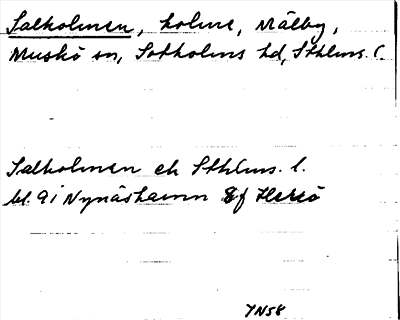 Salholmen, holme, Mälby,
Muskö sn, Sotholms hd, Sthlms. l.
Salholmen ek Sthlms. l.
bl. 91 Nynäshamn Sf Herrö
YN58